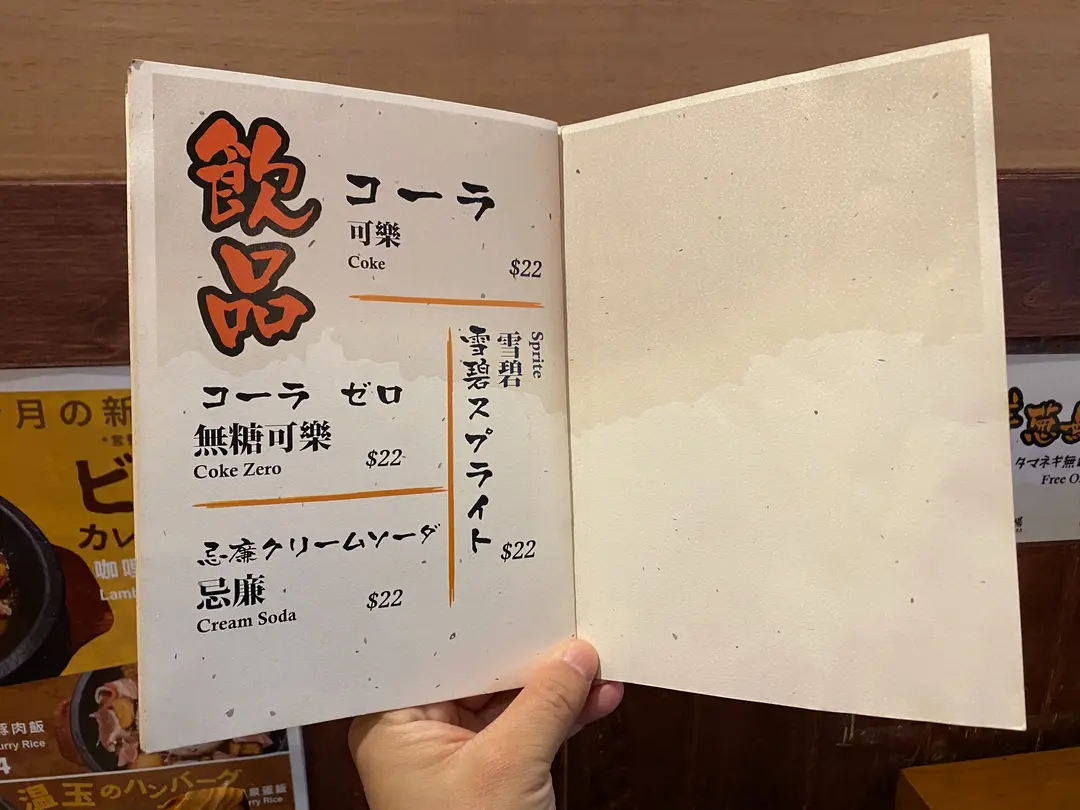 飲品
コーラ
可樂
Coke
$22
コーラ ゼロ
無糖可樂
Coke Zero
$22
忌廉クリームソーダ
忌廉
Cream Soda
$22
Sprite
雪碧
雪碧スプライト
$22
月の新
ビ
カレ
咖
Lamb
豚肉飯
urry Rice
4
温玉のハンバーグ
rry Rice
タマネギ無
Free O